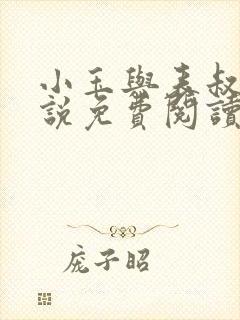 小玉與表叔
說免費閱讀
庞子昭